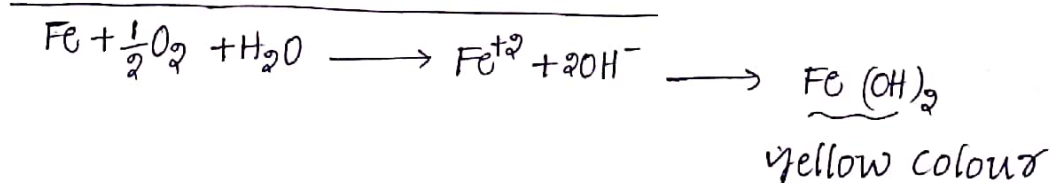 Fe + 1/2 O2 + H2O ⟶ Fe+2 + 2OH- ⟶ Fe (OH)2
yellow colour